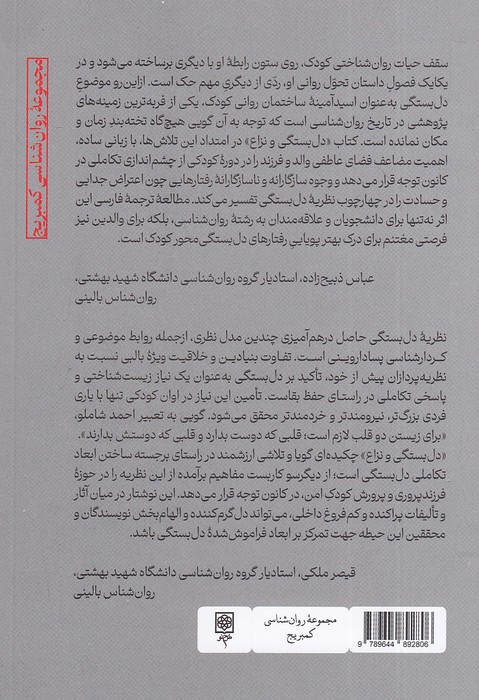 مجموعهٔ روان‌شناسی کمبریج
سقف حیات روان‌شناختی کودک، روی ستون رابطهٔ او با دیگری برساخته می‌شود و در
یکایک فصولِ داستان تحوّل روانی او، ردّی از دیگریِ مهم حک است. ازاین‌رو موضوعِ
دل‌بستگی به‌عنوان اسیدآمینهٔ ساختمان روانی کودک، یکی از فربه‌ترین زمینه‌های
پژوهشی در تاریخ روان‌شناسی است که توجه به آن گویی هیچ‌گاه تخته‌بندِ زمان و
مکان نمانده است. کتاب «دل‌بستگی و نزاع» در امتداد این تلاش‌ها، با زبانی ساده،
اهمیت مضاعف فضای عاطفی والد و فرزند را در دورهٔ کودکی از چشم‌اندازی تکاملی در
کانون توجه قرار می‌دهد و وجوه سازگارانه و ناسازگارانهٔ رفتارهایی چون اعتراض جدایی
و حسادت را در چهارچوب نظریهٔ دل‌بستگی تفسیر می‌کند. مطالعهٔ ترجمهٔ فارسی این
اثر نه‌تنها برای دانشجویان و علاقه‌مندان به رشتهٔ روان‌شناسی، بلکه برای والدین نیز
فرصتی مغتنم برای درک بهتر پویاییِ رفتارهای دل‌بستگی‌محور کودک است.
عباس ذبیح‌زاده، استادیار گروه روان‌شناسی دانشگاه شهید بهشتی،
روان‌شناس بالینی
نظریهٔ دل‌بستگی حاصل درهم‌آمیزی چندین مدل نظری، ازجمله روابط موضوعی و
کردارشناسی پساداروینی است. تفاوت بنیادین و خلاقیت ویژهٔ بالبی نسبت به
نظریه‌پردازان پیش از خود، تأکید بر دل‌بستگی به‌عنوان یک نیاز زیست‌شناختی و
پاسخی تکاملی در راستای حفظ بقاست. تأمین این نیاز در اوان کودکی تنها با یاری
فردی بزرگ‌تر، نیرومندتر و خردمندتر محقق می‌شود. گویی به تعبیر احمد شاملو،
«برای زیستن دو قلب لازم است؛ قلبی که دوست بدارد و قلبی که دوستش بدارند».
«دل‌بستگی و نزاع» چکیده‌ای گویا و تلاشی ارزشمند در راستای برجسته ساختن ابعاد
تکاملی دل‌بستگی است؛ از دیگرسو کاربست مفاهیم برآمده از این نظریه را در حوزهٔ
فرزندپروری و پرورش کودکِ امن، در کانون توجه قرار می‌دهد. این نوشتار در میان آثار
و تألیفات پراکنده و کم‌فروغ داخلی، می‌تواند دل‌گرم‌کننده و الهام‌بخش نویسندگان و
محققین این حیطه جهت تمرکز بر ابعاد فراموش‌شدهٔ دل‌بستگی باشد.
قیصر ملکی، استادیار گروه روان‌شناسی دانشگاه شهید بهشتی،
روان‌شناس بالینی
مجموعهٔ روان‌شناسی
کمبریج
9 789644 892806